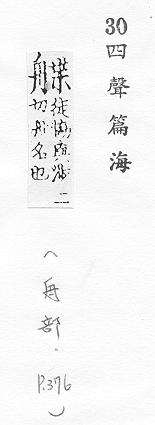 30四聲篇海
艓徒協直涉二
切舟名也
(舟部.P.376)